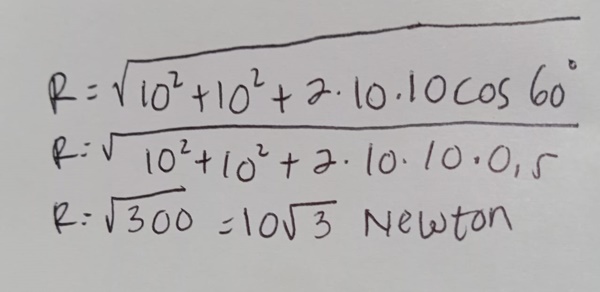 R = √10² + 10² + 2 · 10 · 10 cos 60°
R = √10² + 10² + 2 · 10 · 10 · 0,5
R = √300 = 10√3 Newton